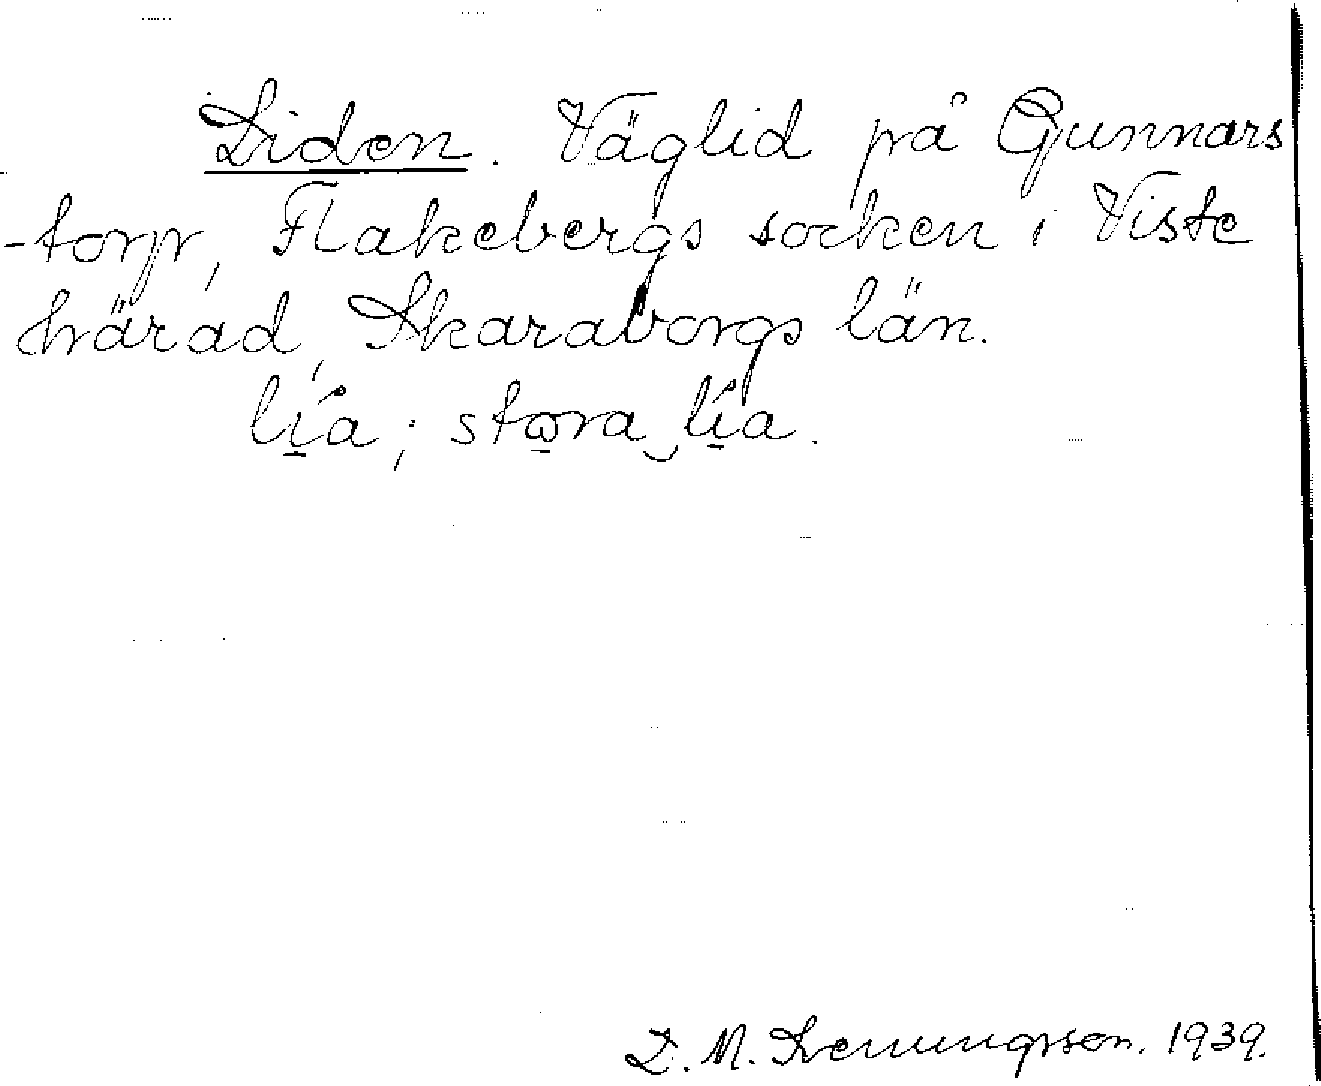 Liden. Väglid på Gunnars
-torp, Flakebergs socken i Viste
härad, Skaraborgs län.
lía; stora lía.
D. M. 1939.